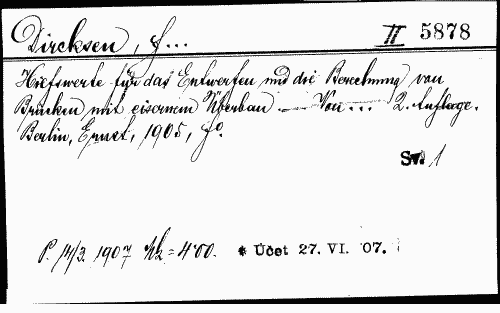 Dircksen, F... II 5878
Hilfswerte für das Entwerfen und die Berechnung von
Brücken mit eisernem Überbau — Von ... 2. Auflage.
Berlin, Ernst, 1905, f°.
Sv. 1
P. 14/3 1907 Mk = 4·00. * Účet 27. VI. '07.